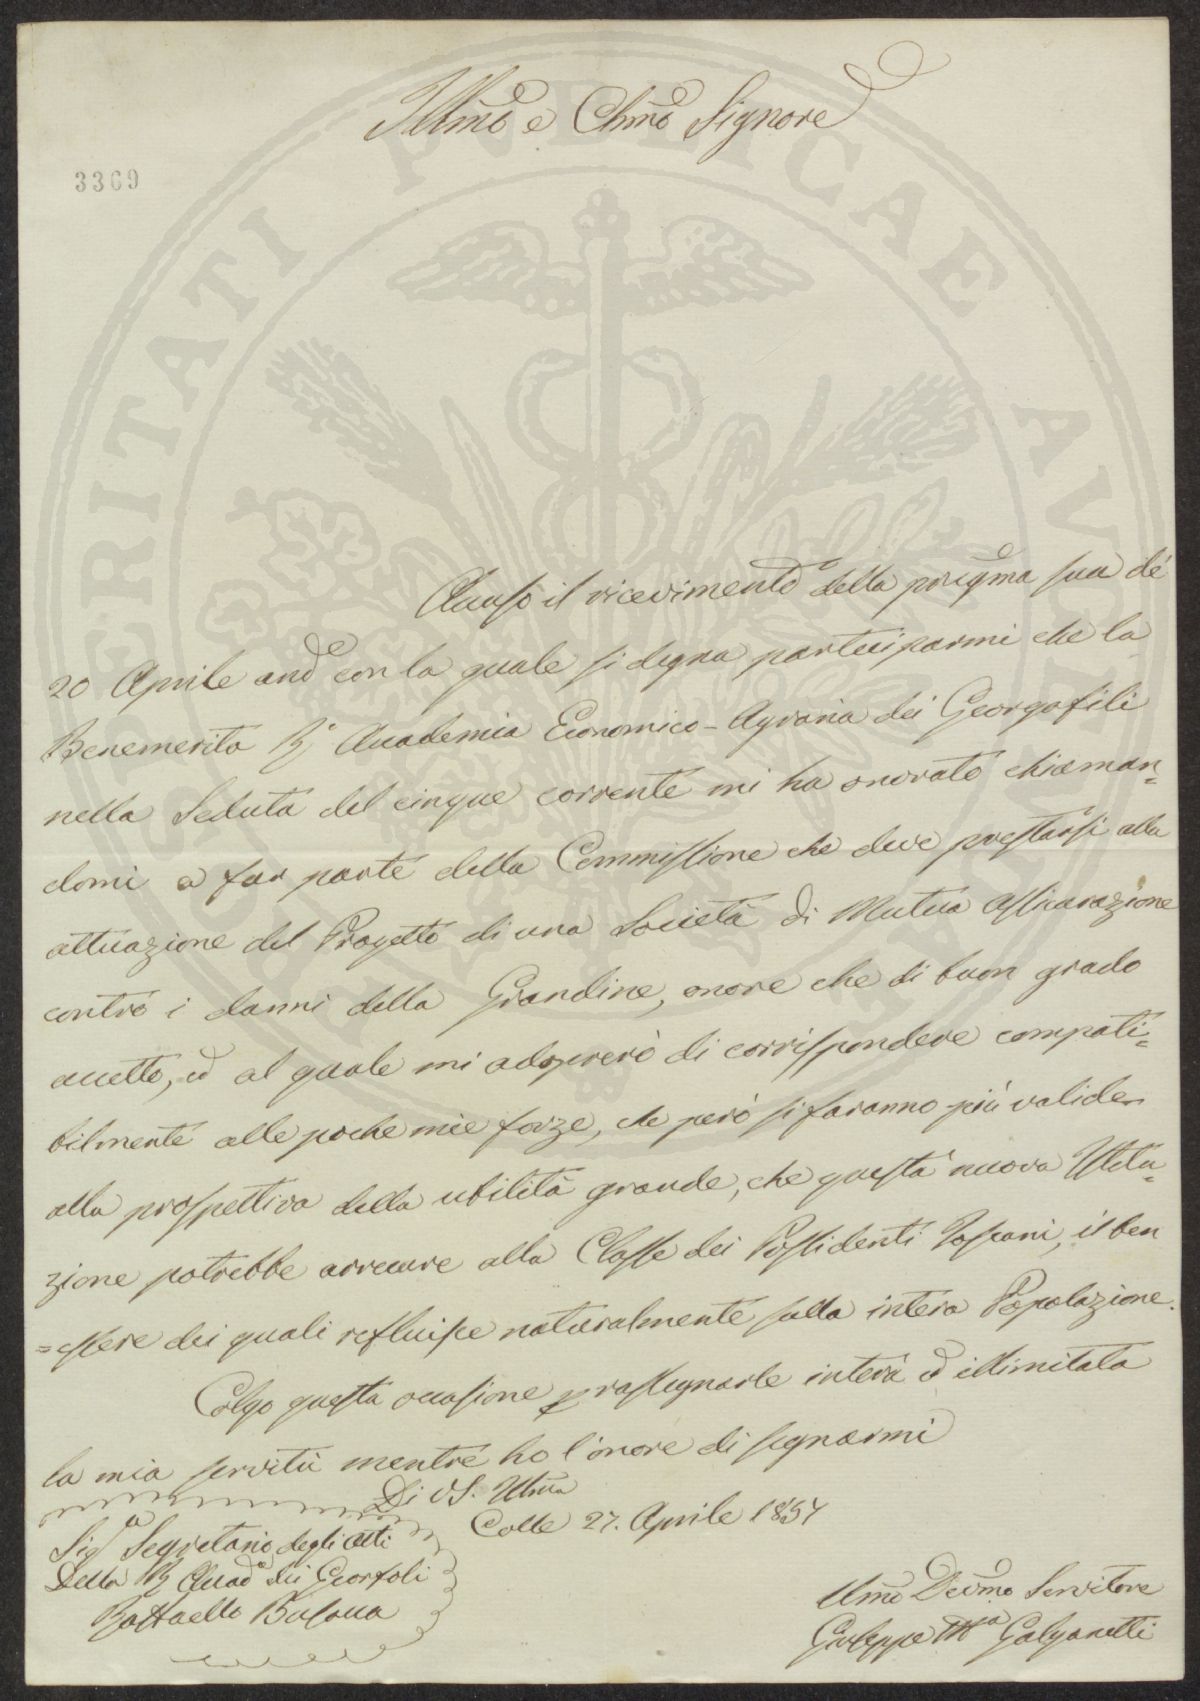 Illmo e Chmo Signore
3369
Accuso il ricevimento della pregma sua de'
20 Aprile and.e con la quale si degna parteciparmi che la
Benemerita R. Accademia Economico-Agraria dei Georgofili
nella Seduta del cinque corrente mi ha onorato chiaman=
domi a far parte della Commissione che deve prestarsi alla
attuazione del Progetto di una Società di Mutua assicurazione
contro i danni della Grandine, onore che di buon grado
accetto, ed al quale mi adoprerò di corrispondere compati=
bilmente alle poche mie forze, che però si faranno più valide
alla prospettiva della utilità grande, che questa nuova Istitu=
zione potrebbe arrecare alla Classe dei Possidenti Toscani, il ben
=essere dei quali refluisce naturalmente sulla intera Popolazione.
Colgo questa occasione p rassegnarle intera ed illimitata
la mia servitù mentre ho l'onore di segnarmi
Di VS. Illma
Colle 27. Aprile 1857
Sig. Segretario degli Atti
Della R. Accad.a dei Georgofili
Raffaello Busacca
Umo Devmo Servitore
Giuseppe M.a Galganetti
PROSPERITATI PUBLICAE AUGENDAE